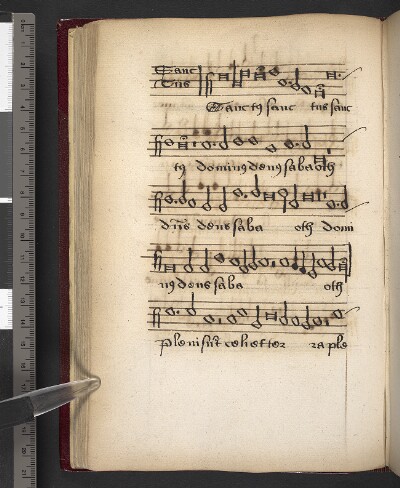 Sanc
tus
Sanctꝰ sanc tus sanc
tꝰ dominꝰ deuꝰ sabaoth
dñs deus saba oth domi
nꝰ deus saba oth
pleni sūt celi et ter ra ple